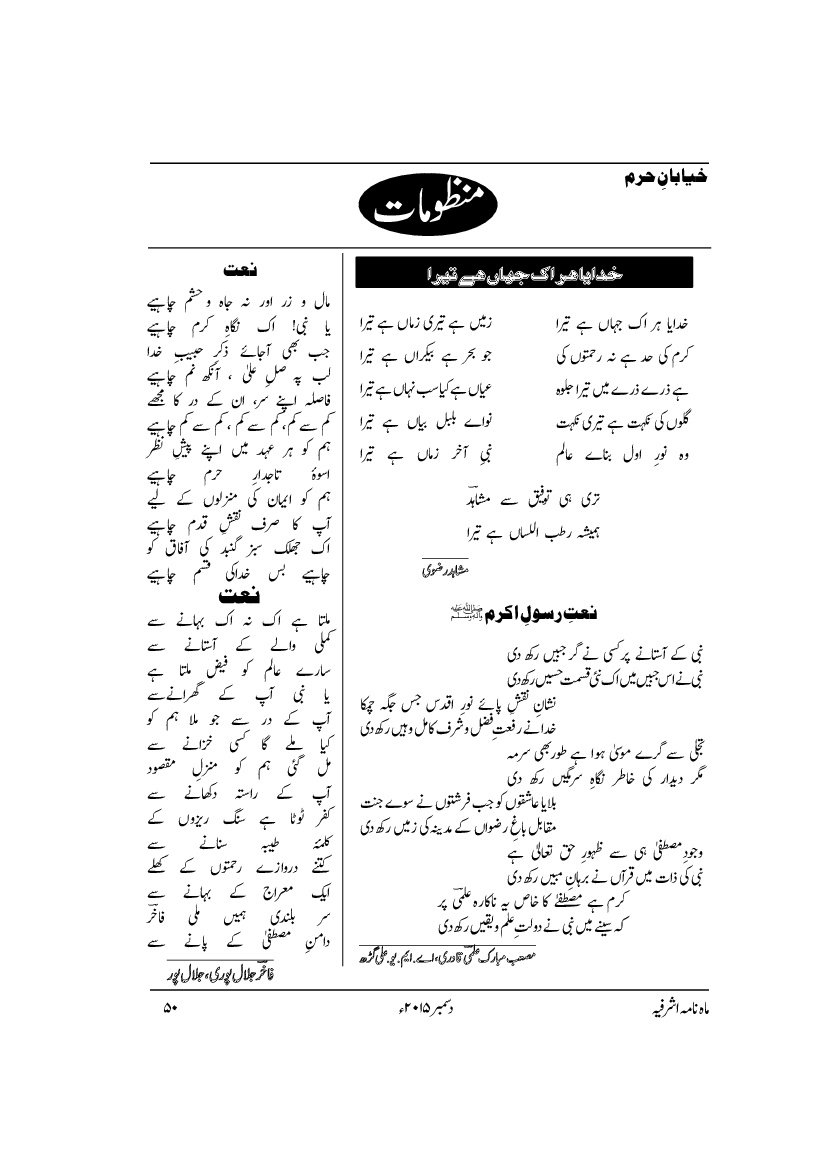 خیابانِ حرم
منظومات
خدایا ہر اک جہاں ہے تیرا
خدایا ہر اک جہاں ہے تیرا زمیں ہے تیری زماں ہے تیرا
کرم کی حد ہے نہ رحمتوں کی جو بحر ہے بیکراں ہے تیرا
ہے ذرے ذرے میں تیرا جلوہ عیاں ہے کیا سب نہاں ہے تیرا
گلوں کی نکہت ہے تیری نکہت نواے بلبل بیاں ہے تیرا
وہ نورِ اول بناے عالم نبیِ آخر زماں ہے تیرا
تری ہی توفیق سے مشاہدؔ
ہمیشہ رطب اللساں ہے تیرا
مشاہد رضوی
نعتِ رسولِ اکرم ﷺ
نبی کے آستانے پر کسی نے گر جبیں رکھ دی
نبی نے اس جبیں میں اک نئی قسمت حسیں رکھ دی
نشانِ نقشِ پائے نورِ اقدس جس جگہ چمکا
خدا نے رفعتِ فضل و شرف کامل وہیں رکھ دی
تجلی سے گرے موسیٰ ہوا ہے طور بھی سرمہ
مگر دیدار کی خاطر نگاہِ سرمگیں رکھ دی
بلایا عاشقوں کو جب فرشتوں نے سوے جنت
مقابل باغِ رضواں کے مدینہ کی زمیں رکھ دی
وجودِ مصطفیٰ ہی سے ظہورِ حق تعالیٰ ہے
نبی کی ذات میں قرآں نے برہانِ مبیں رکھ دی
کرم ہے مصطفےٰ کا خاص یہ ناکارہ علمیؔ پر
کہ سینے میں نبی نے دولتِ علم و یقیں رکھ دی
مصعب مبارک علمیؔ قادری، اے۔ ایم۔ یو۔ علی گڑھ
نعت
مال و زر اور نہ جاہ و حشم چاہیے
یا نبی! اک نگاہِ کرم چاہیے
جب بھی آجائے ذکرِ حبیبِ خدا
لب پہ صلِ علیٰ ، آنکھ نم چاہیے
فاصلہ اپنے سر، ان کے در کا مجھے
کم سے کم، کم سے کم ، کم سے کم چاہیے
ہم کو ہر عہد میں اپنے پیشِ نظر
اسوۂ تاجدارِ حرم چاہیے
ہم کو ایمان کی منزلوں کے لیے
آپ کا صرف نقشِ قدم چاہیے
اک جھلک سبز گنبد کی آفاق کو
چاہیے بس خدا کی قسم چاہیے
نعت
ملتا ہے اک نہ اک بہانے سے
کملی والے کے آستانے سے
سارے عالم کو فیض ملتا ہے
یا نبی آپ کے گھرانے سے
آپ کے در سے جو ملا ہم کو
کیا ملے گا کسی خزانے سے
مل گئی ہم کو منزلِ مقصود
آپ کے راستہ دکھانے سے
کفر ٹوٹا ہے سنگ ریزوں کے
کلمۂ طیبہ سنانے سے
کتنے دروازے رحمتوں کے کھلے
ایک معراج کے بہانے سے
سر بلندی ہمیں ملی فاخرؔ
دامنِ مصطفیٰ کے پانے سے
فاخرؔ جلال پوری، جلال پور
ماہ نامہ اشرفیہ
دسمبر ۲۰۱۵ء
۵۰